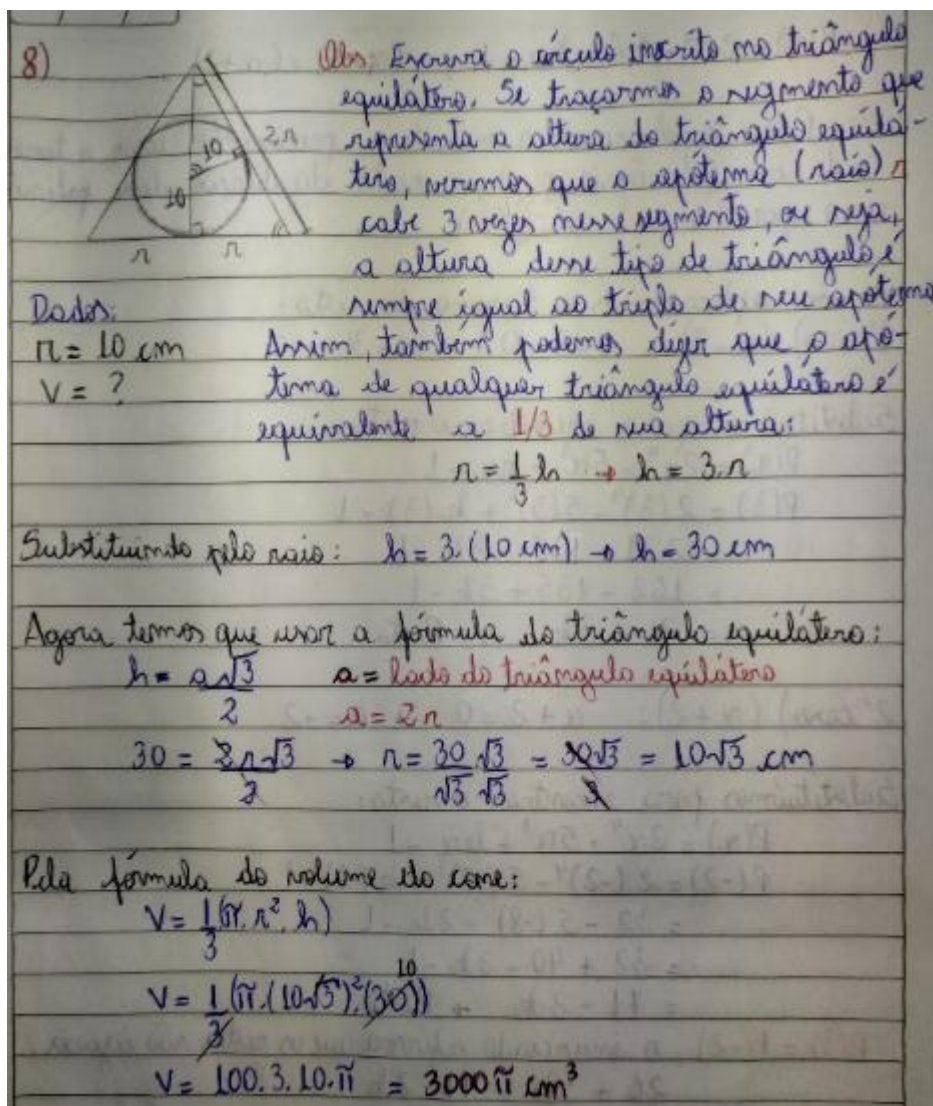 8)
Obs: Escreva o círculo inscrito no triângulo
equilátero. Se traçarmos o segmento que
representa a altura do triângulo equilá-
tero, veremos que o apótema (raio)
cabe 3 vezes nesse segmento, ou seja,
a altura desse tipo de triângulo é
sempre igual ao triplo de seu apótema
10
2r
10
r r
Dados:
r = 10 cm
V = ?
Assim, também podemos dizer que o apó-
tema de qualquer triângulo equilátero é
equivalente a 1/3 de sua altura:
r = 1/3 h → h = 3.r
Substituindo pelo raio: h = 3.(10 cm) → h = 30 cm
Agora temos que usar a fórmula do triângulo equilátero:
h = a√3/2 a = lado do triângulo equilátero
a = 2r
30 = 2r√3/2 → r = 30/√3 √3/√3 = 30√3/3 = 10√3 cm
Pela fórmula do volume do cone:
V = 1/3 (π.r².h)
V = 1/3 (π.(10√3)².(30)) 10
V = 100.3.10.π = 3000π cm³